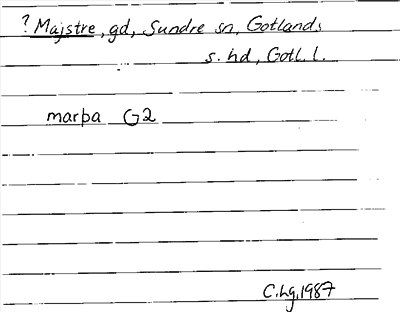 ? Majstre, gd, Sundre sn, Gotlands
s. hd, Gotl. l.
marþa G2
C.Lg, 1987